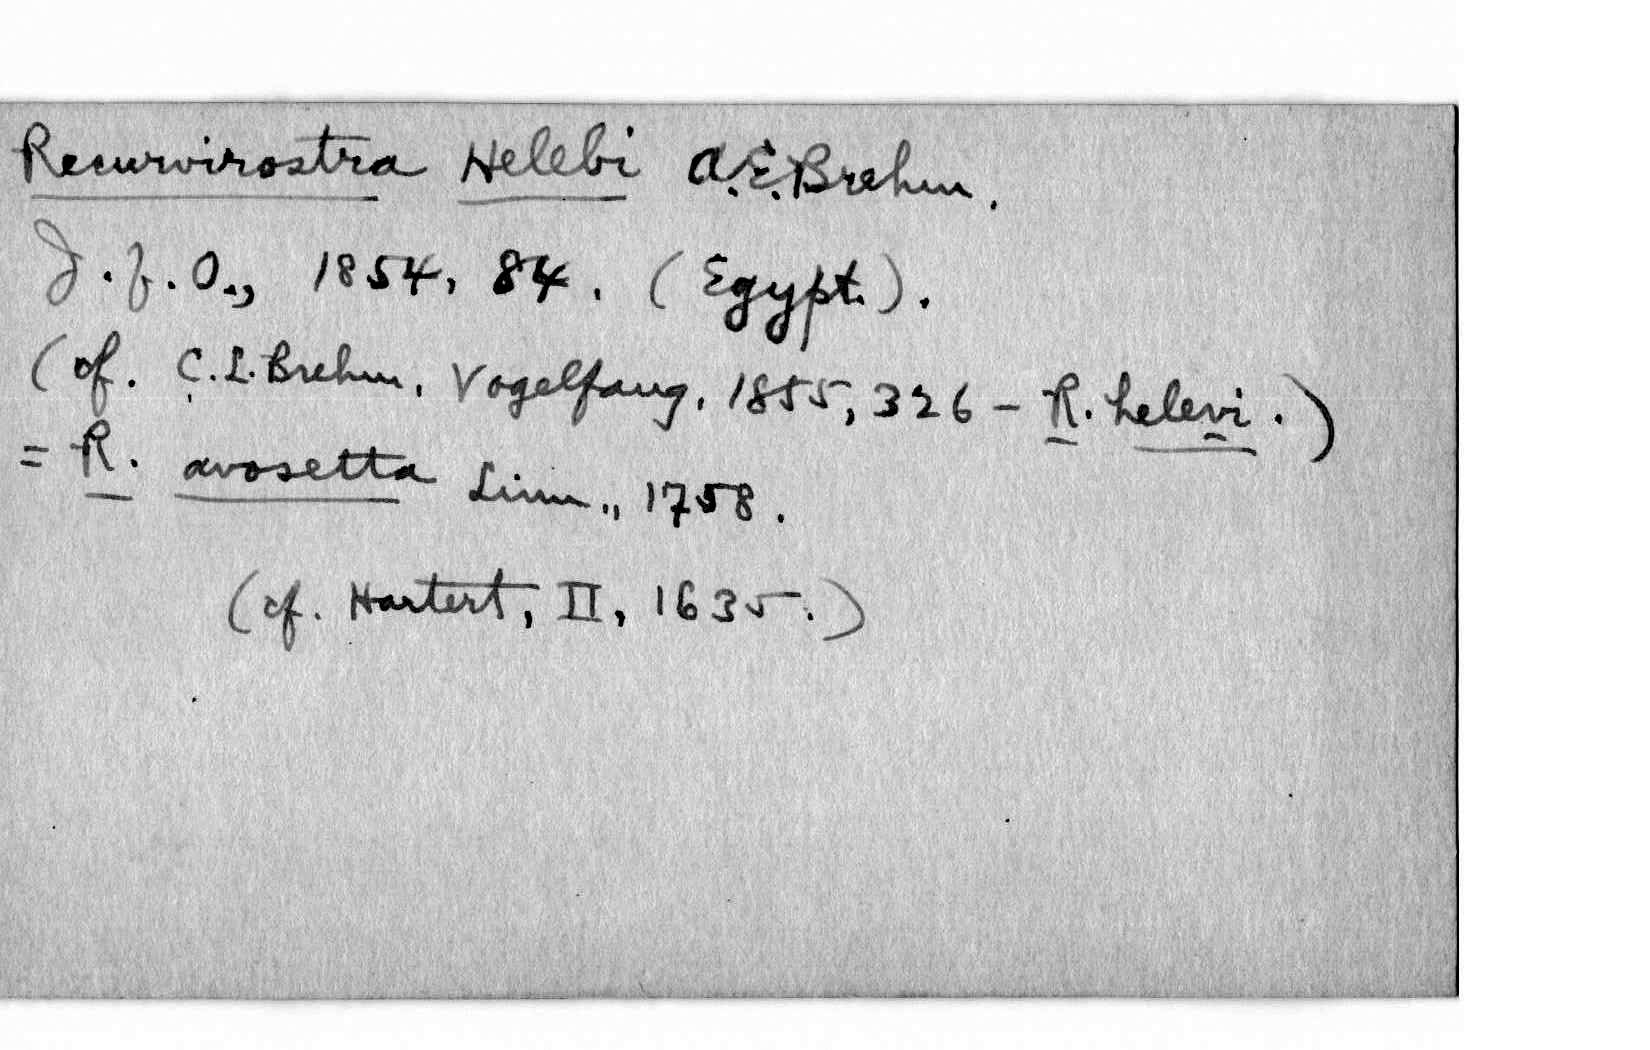 Recurvirostra Helebi A.E.Brehm.
J.f.O., 1854, 84. (Egypt.).
(cf. C.L.Brehm, Vogelfang, 1855, 326 - R. helevi.)
= R. avosetta Linn., 1758.
(cf. Hartert, II, 1635.)